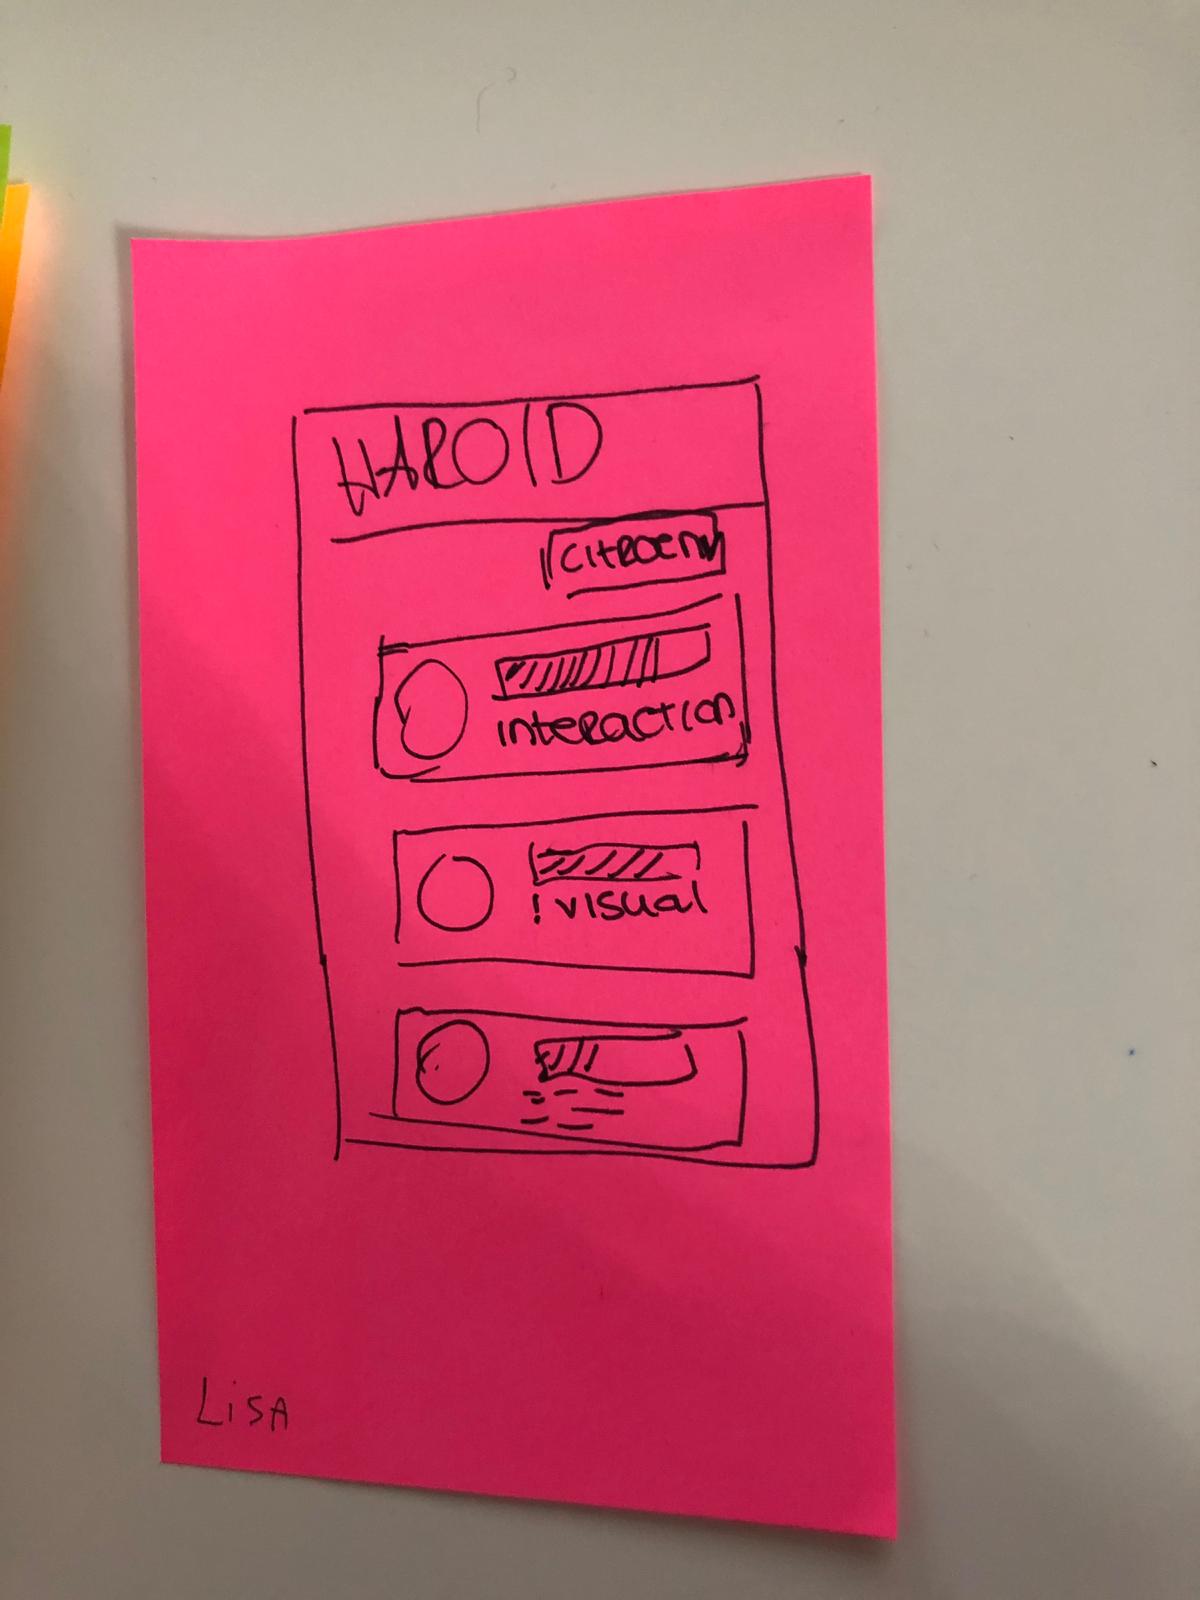 HAROLD
CITROEN
interaction
! visual
LiSA